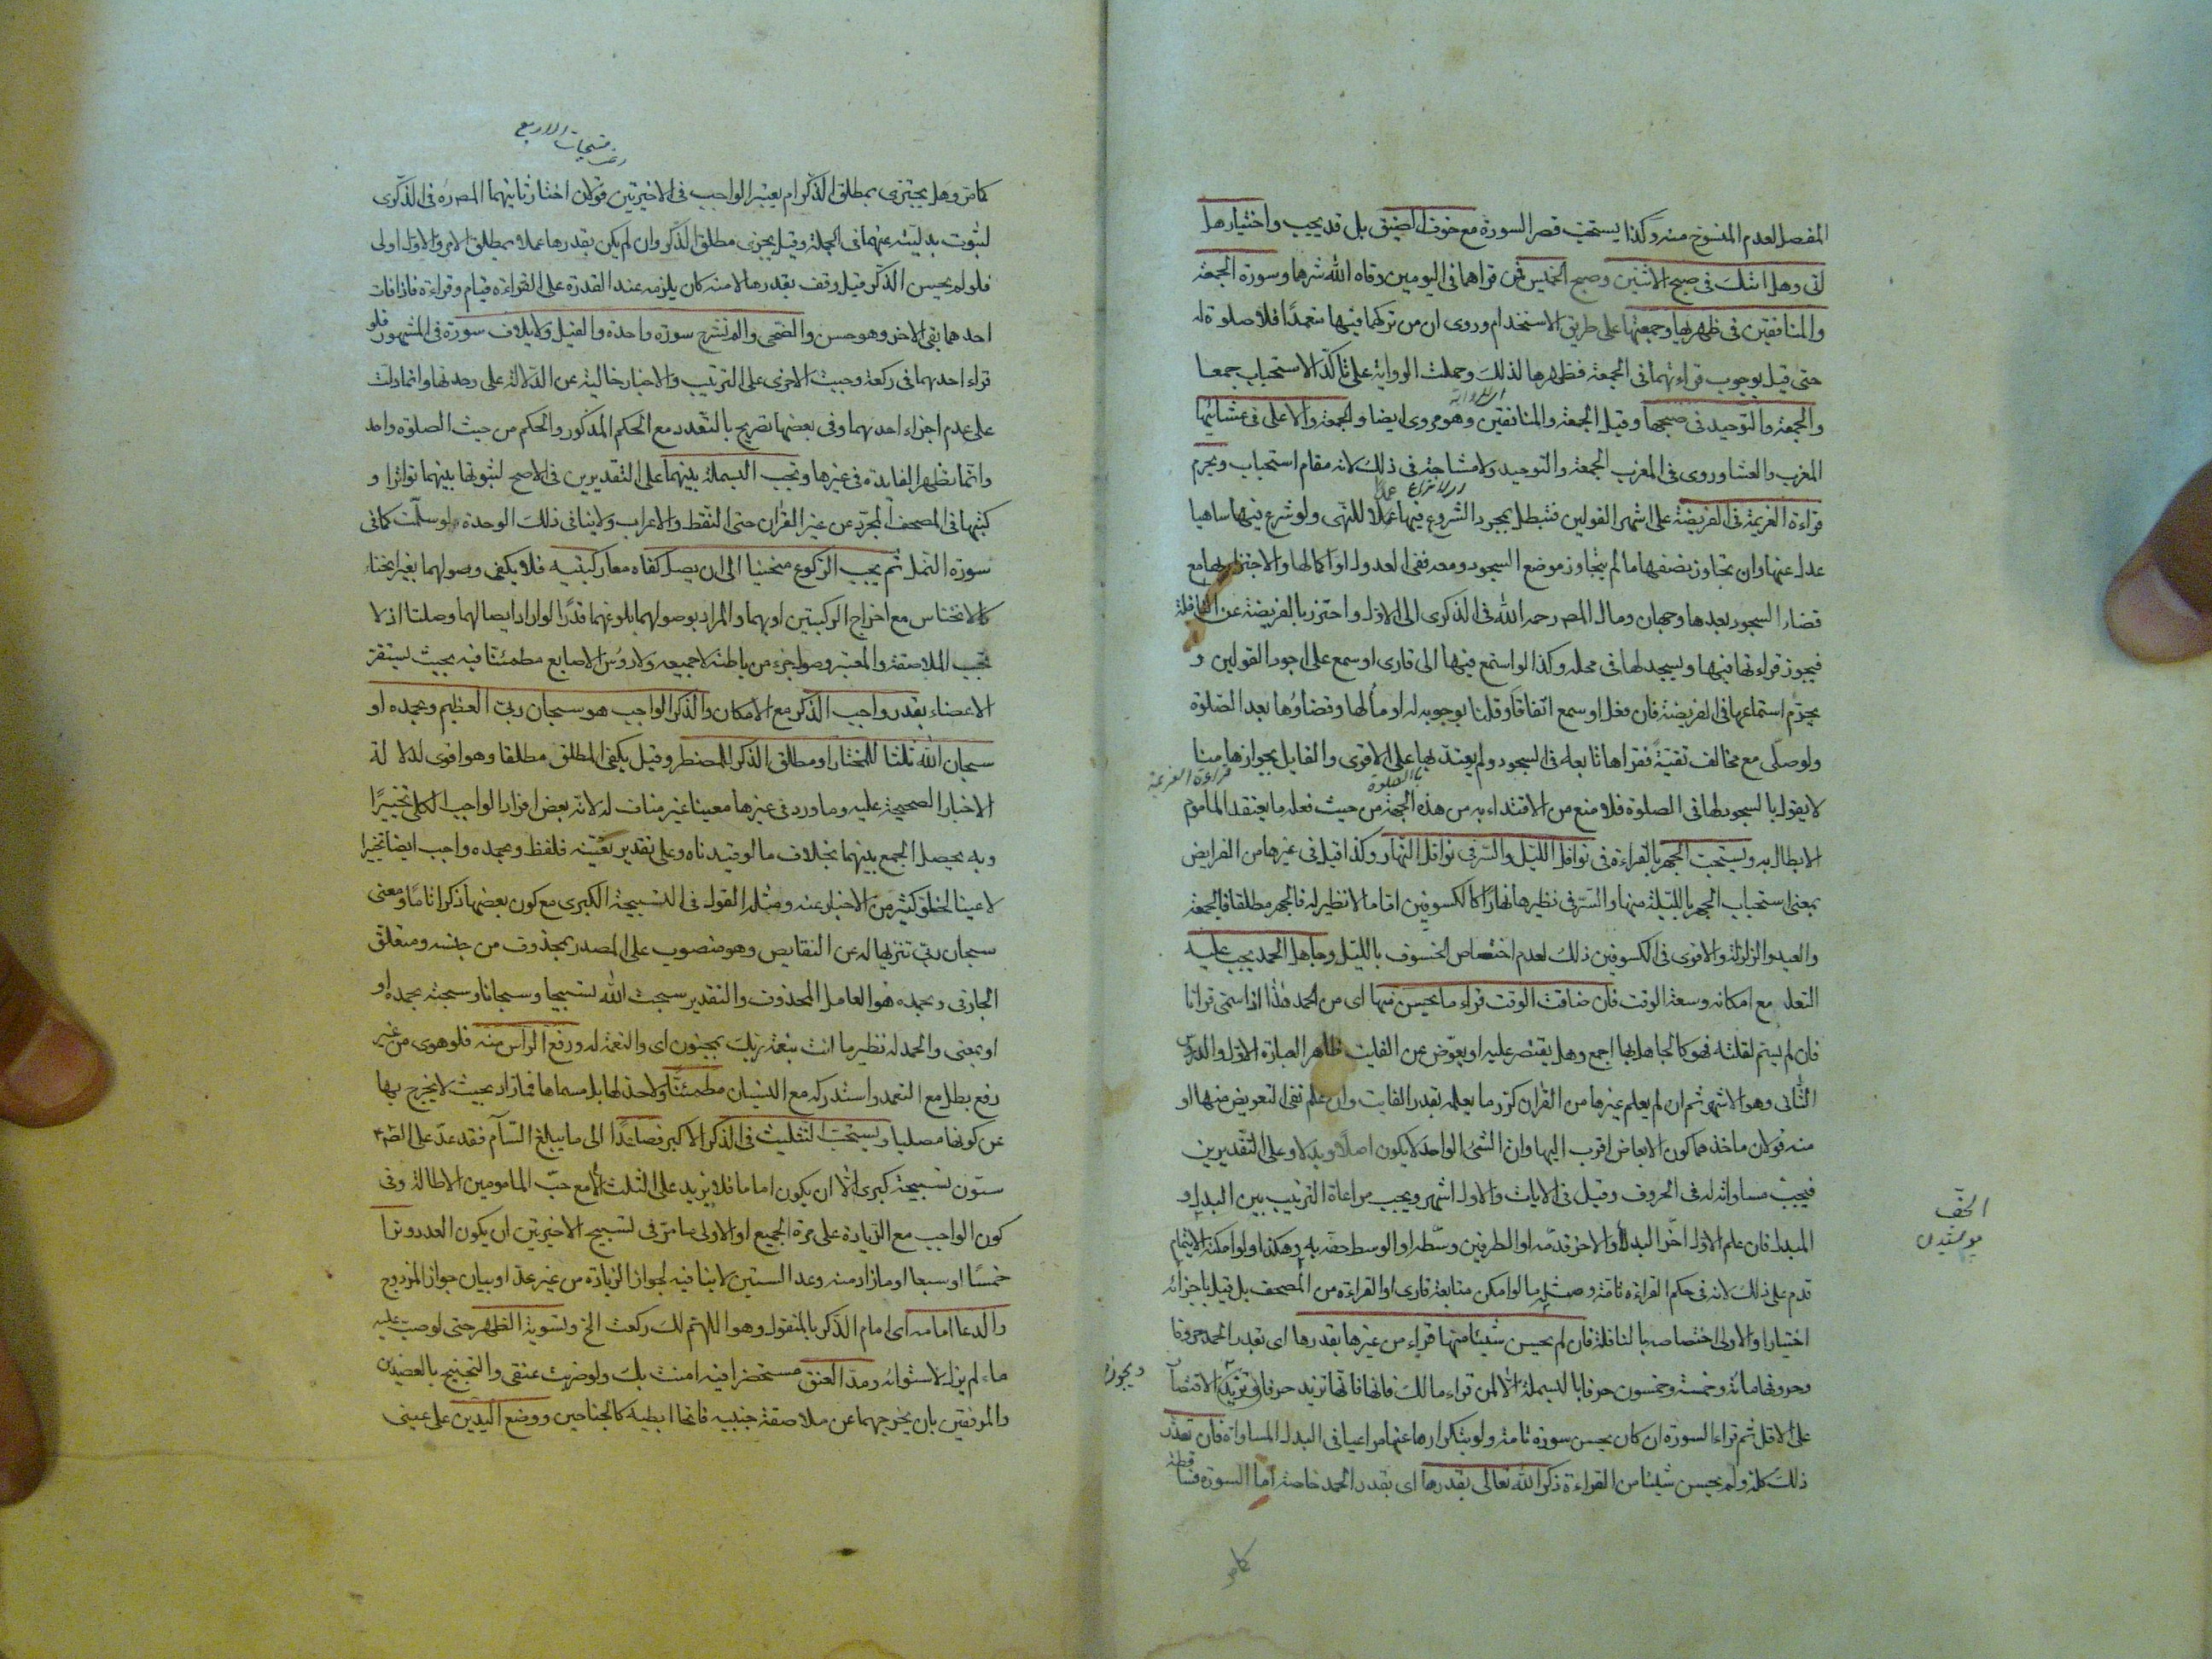 المفصل لعدم المنسوخ منه وكذا يستحب قصر السورة مع خوف الضيق بل قد يجب واختيار هل
اتى وهل اتيك فى صبح الاثنين وصبح الخميس فمن قراهما فى اليومين وقاه الله شرهما وسورة الجمعة
والمنافقين فى ظهريها وجمعتها على طريق الاستخدام وروى ان من تركهما فيها متعمدًا فلا صلوة له
حتى قيل بوجوب قراءتهما فى الجمعة وظهرها لذلك وحملت الرواية على تاكّد الاستحباب جمعا
والجمعة والتوحيد فى صبحها وقيل الجمعة والمنافقين وهو مروى ايضا والجمعة والاعلى فى عشائيها
المغرب والعشا وروى فى المغرب الجمعة والتوحيد ولا مشاحة فى ذلك لانه مقام استحباب ويحرم
قراءة العزيمة فى الفريضة على اشهر القولين فتبطل بمجرد الشروع فيها عملا للنهى ولو شرع فيها ساهيا
عدل عنها وان تجاوز نصفها ما لم يتجاوز موضع السجود ومعه ففى العدول او اكمالها والاجتزاء بها مع
قضاء السجود بعدها وجهان ومال المصـ رحمه الله فى الذكرى الى الاول واحترز بالفريضة عن النافلة
فيجوز قراءتها فيها ويسجد لها فى محله وكذا لو استمع فيها الى قارى او سمع على اجود القولين و
يحرم استماعها فى الفريضة فان فعل او سمع اتفاقًا وقلنا بوجوبه له اومأ لها وقضاؤها بعد الصلوة
ولو صلّى مع مخالف تقيّةً فقراها تابعه فى السجود ولم يعتدّ بها على الاقوى والقايل بجوازها منا
قراءة العزيمة
بالصلوة
لا يقول بالسجود لها فى الصلوة فلا منع من الاقتداء به من هذه الجهة من حيث فعله ما يعتقد الماموم
الابطال به ويستحب الجهر بالقراءة فى نوافل الليل والسر فى نوافل النهار وكذا قيل فى غيرها من الفرايض
بمعنى استحباب الجهر بالليلية منها والسر فى نظيرها نهارا كالكسوفين اما ما لا نظير له فالجهر مطلقا كالجمعة
والعيد والزلزلة والاقوى فى الكسوفين ذلك لعدم اختصاص الخسوف بالليل وجاهل الحمد يجب عليه
التعلم مع امكانه وسعة الوقت فان ضاقت الوقت قراء ما يحسن منها اى من الحمد هذا اذا سمّى قرآنا
فان لم يسم لقلته فهو كالجاهل بها اجمع وهل يقتصر عليه او يعوّض عن الفايت ظاهر العبارة الاول والدروس
الثانى وهو الاشهر ثم ان لم يعلم غيرها من القرآن كرر ما يعلمه بقدر الفايت وان علم ففى التعويض منها او
منه قولان ماخذهما كون الابعاض اقرب اليها وان الشئ الواحد لا يكون اصلا وبدلا وعلى التقديرين
فيجب مساواته له فى الحروف وقيل فى الايات والاول اشهر ويجب مراعاة الترتيب بين البدل و
المبدل فان علم الاول اخّر البدل أو الاخر قدّمه او الطرفين وسّطه او الوسط حفّه به وهكذا ولو امكنه الايتمام
الحفّ
قدم على ذلك لانه فى حكم القراءة تامة ومثله ما لو امكن متابعة قارى او القراءة من المصحف بل قيل باجزائه
اختيارا والاولى اختصاصه بالنافلة فان لم يحسن شيئا منها قراء من غيرها بقدرها اى بقدر الحمد حروفا
وحروفها مائة وخمسة وخمسون حرفا بالبسملة الا لمن قراء مالك فانها تزيد حرفا ويجوز الاقتصار
على الاقل ثم قراء السورة ان كان يحسن سورة تامة ولو بتكرارها عنها مراعيا فى البدل المساواة فان تعذر
ذلك كله ولم يحسن شيئا من القراءة ذكر الله تعالى بقدرها اى بقدر الحمد خاصة اما السورة فساقطة
كما مر
كما مرّ وهل يجتزى بمطلق الذكر ام يعتبر الواجب فى الاخيرتين قولان اختار ثانيهما المصـ ره فى الذكرى
لثبوت بدليته عنهما فى الجملة وقيل يجزى مطلق الذكر وان لم يكن بقدرها عملا بمطلق الامر والاول اولى
فلو لم يحسن الذكر قيل وقف بقدرها لانه كان يلزمه عند القدرة على القراءة قيام وقراءة فاذا فات
احدهما بقى الاخر وهو حسن والضحى والم نشرح سورة واحدة والفيل ولايلاف سورة فى المشهور فلو
قراء احديهما فى ركعة وجبت الاخرى على الترتيب والاخبار خالية عن الدلالة على وحدتها وانما دلت
على عدم اجزاء احديهما وفى بعضها تصريح بالتعدد مع الحكم المذكور والحكم من حيث الصلوة واحد
وانما تظهر الفايدة فى غيرها وتجب البسملة بينهما على التقديرين فى الاصح لثبوتها بينهما تواترا و
كتبها فى المصحف المجرّد عن غير القرآن حتى النقط والاعراب ولا ينافى ذلك الوحدة لو سلمت كما فى
سورة النمل ثم يجب الركوع منحنيا الى ان يصل كفاه معا ركبتيه فلا يكفى وصولهما بغير انحناء
كالانخناس مع اخراج الركبتين او بهما والمراد بوصولهما بلوغهما قدرًا لو اراد ايصالهما وصلتا اذ لا
تجب الملاصقة والمعتبر وصول جزء من باطنه لا جميعه ولا رؤس الاصابع مطمئنا فيه بحيث يستقر
الاعضاء بقدر واجب الذكر مع الامكان والذكر الواجب هو سبحان ربى العظيم وبحمده او
سبحان الله ثلثا للمختار او مطلق الذكر للمضطر وقيل يكفى المطلق مطلقا وهو اقوى لدلالة
الاخبار الصحيحة عليه وما ورد فى غيرها معينا غير مناف له لانه بعض افراد الواجب الكلى تخييرًا
وبه يحصل الجمع بينهما بخلاف ما لو قيدناه وعلى تقدير تعيّنه فلفظ وبحمده واجب ايضا تخييرا
لا عينا لخلوّ كثير من الاخبار عنه ومثله القول فى التسبيحة الكبرى مع كون بعضها ذكرا تاما ومعنى
سبحان ربى تنزيها له عن النقايص وهو منصوب على المصدر بمحذوف من جنسه ومتعلق
الجار فى وبحمده هو العامل المحذوف والتقدير سبحت الله تسبيحا وسبحانا وسبحته بحمده او
او بمعنى والحمد له نظير ما انت بنعمة ربك بمجنون اى والنعمة له ورفع الراس منه فلو هوى من غير
رفع بطل مع التعمد واستدركه مع النسيان مطمئنا ولا حدّ لها بل مسماها فما زاد بحيث لا يخرج بها
عن كونها مصليا ويستحب التثليث فى الذكر الاكبر فصاعدًا الى ما يبلغ السأم فقد عدّ على الصـ
ستون تسبيحة كبرى الا ان يكون اماما فلا يزيد على الثلث الا مع حبّ المامومين الاطالة وفى
كون الواجب مع الزيادة على مرة الجميع او الاولى ما مرّ فى تسبيح الاخيرتين ان يكون العدد وترا
خمسًا او سبعا او ما زاد منه وعد الستين لا ينافيه لجواز الزيادة من غير عدّ او بيان جواز المزدوج
والدعا امامه اى امام الذكر بالمنقول وهو اللهم لك ركعت الخ وتسوية الظهر حتى لو صبّ عليه
ماء لم يزل لاستوائه ومدّ العنق مستحضرا فيه امنت بك ولو ضربت عنقى والتجنيح بالعضدين
والمرفقين بان يخرجهما عن ملاصقة جنبيه فاتحا ابطيه كالجناحين ووضع اليدين على عينى